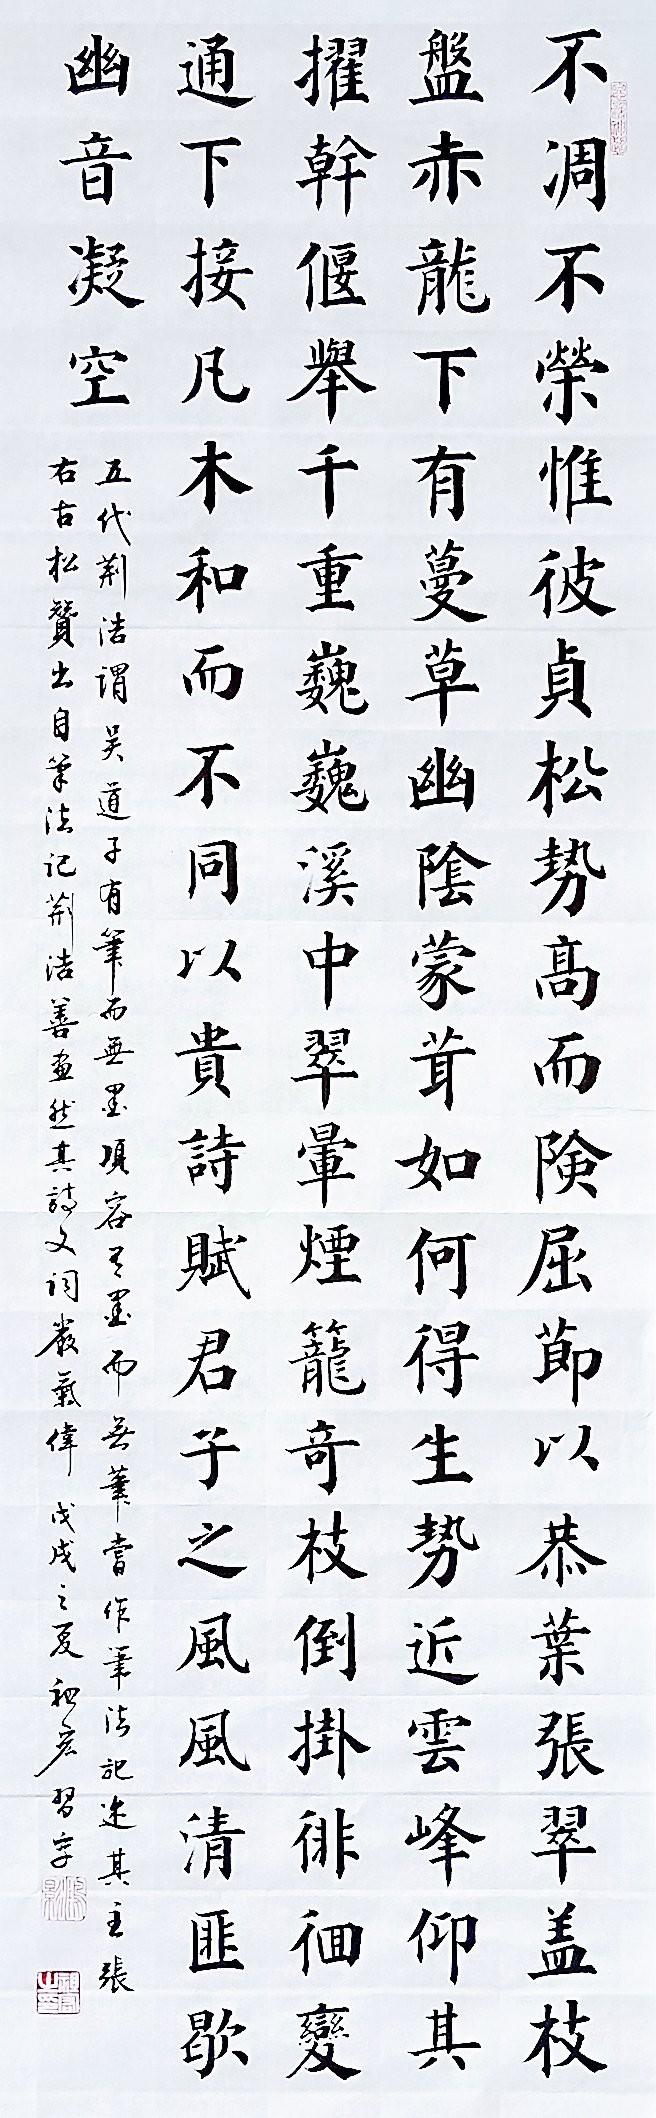 不凋不榮惟彼貞松勢髙而険屈節以恭葉張翠盖枝
盤赤龍下有蔓草幽陰蒙茸如何得生勢近雲峰仰其
擢幹偃舉千重巍巍溪中翠暈煙籠奇枝倒掛徘徊變
通下接凡木和而不同以貴詩賦君子之風風清匪歇
幽音凝空
五代荆浩謂吴道子有筆而無墨項容有墨而無筆嘗作筆法記述其主張
右古松贊出自筆法记荆浩善画然其詩文词嚴氣偉戊戌之夏
習字